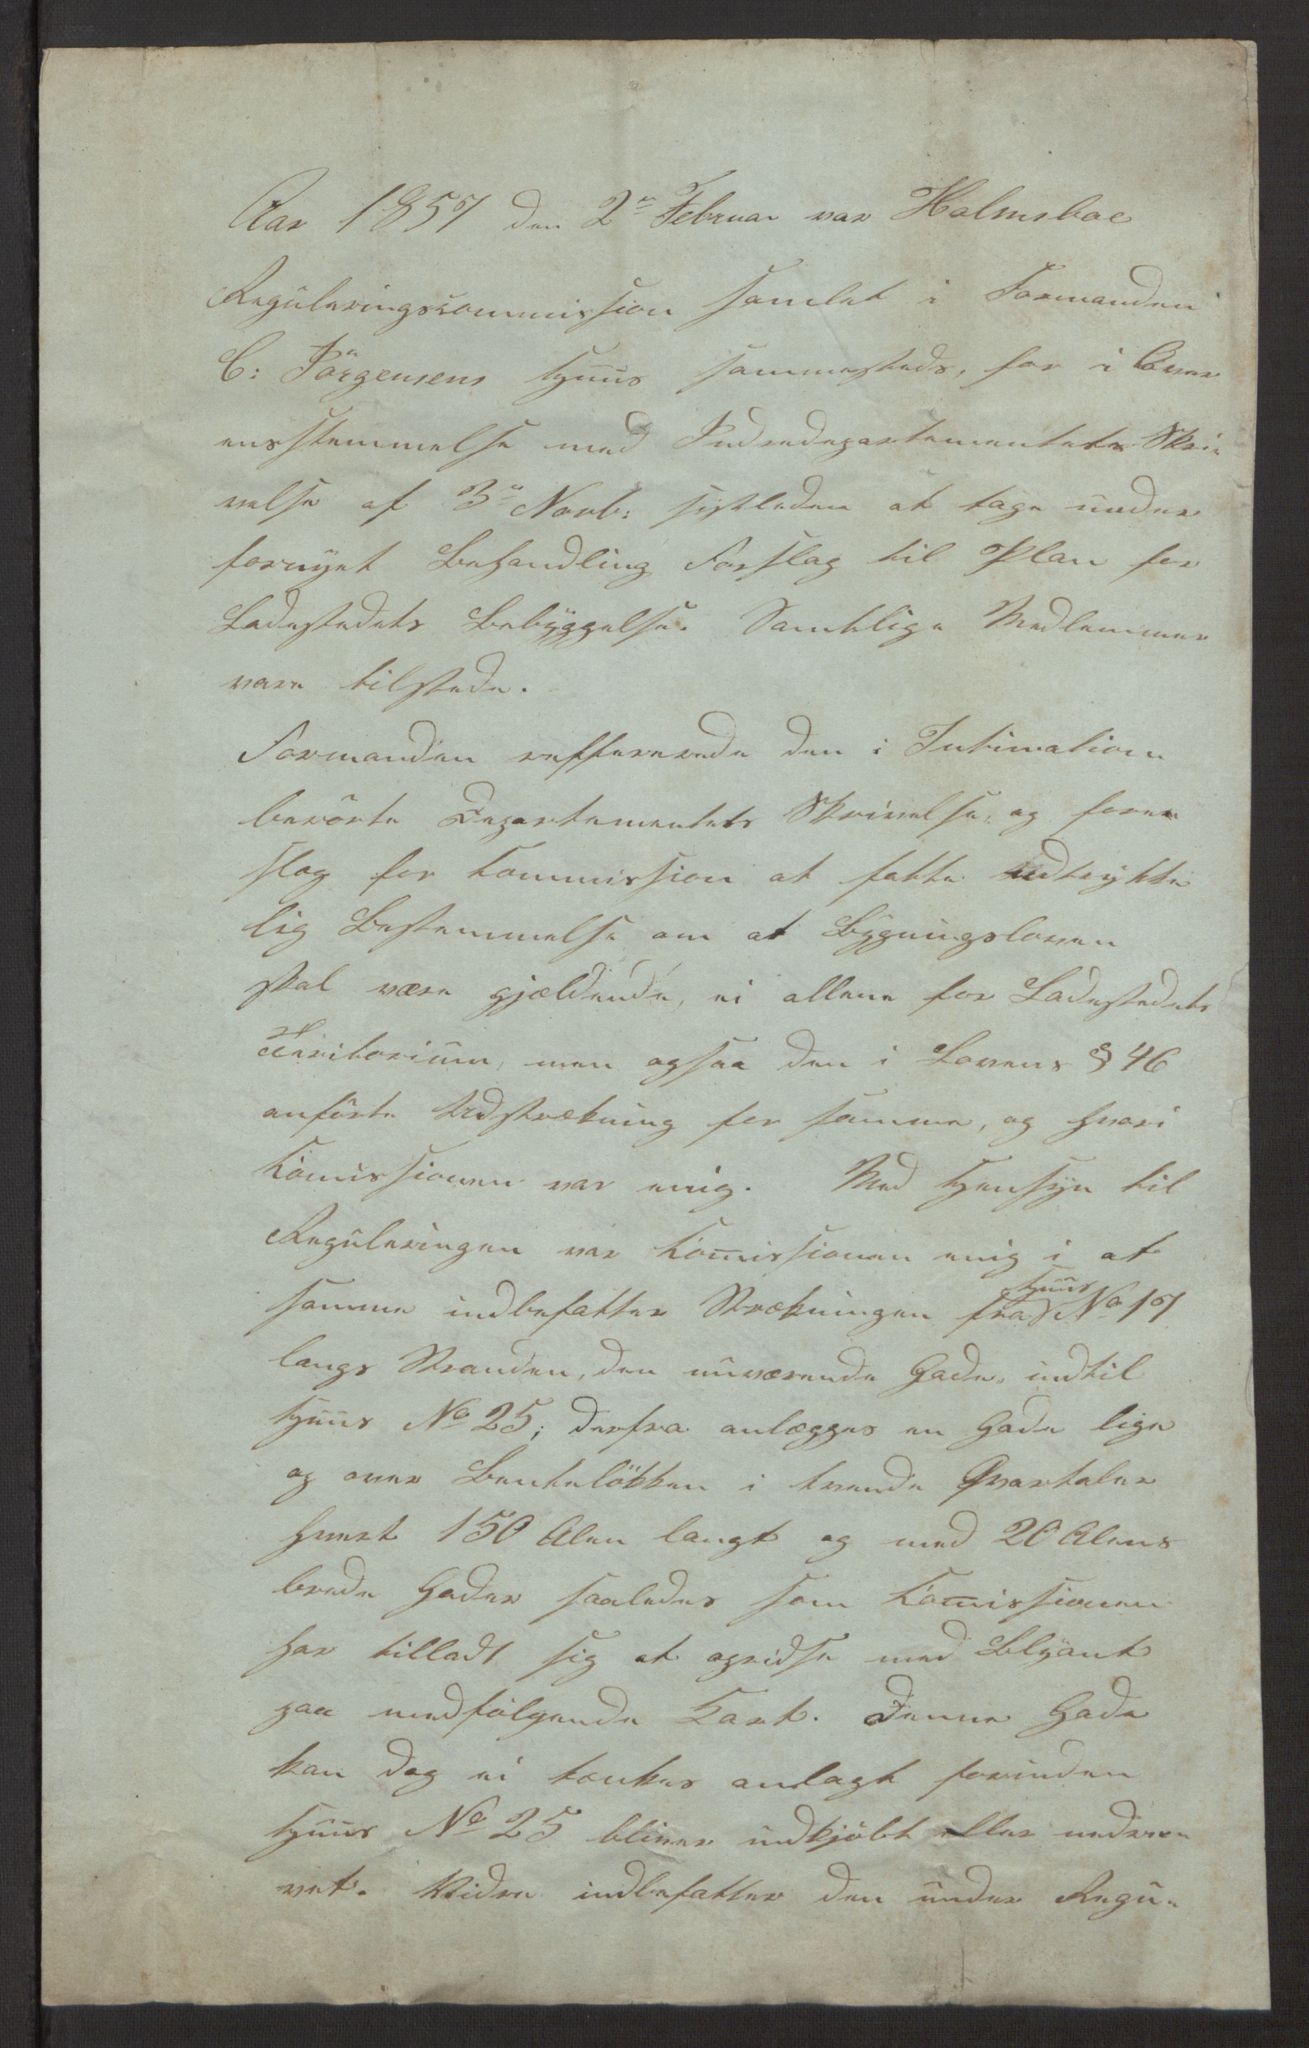 Aar 1857 den 2n Februar var Holmsboe
Reguleringscommission samlet i Formanden
C: Jörgensens Huus sammesteds, for i Over
ensstemmelse med Indredepartementets Skri
velse af 3n Novb: sistleden at tage under
fornyet Behandling Forslag til Plan for
Ladestedets Bebyggelse. Samtlige Medlemmer
vare tilstede.
Formanden reffererede den i Intimation
berörte Departementets Skrivelse, og fore
slog for Commission at fatte udtrykke
lig Bestemmelse om at Bygningsloven
skal være gjældende, ei allene for Ladestedets
Teritorium, men ogsaa den i Lovens § 46
anförte Udstrækning for samme, og hvori
Komissionen var enig. Med Hensyn til
Reguleringen var Komissionen enig i at
samme indbefatter Strækningen fra Huus No 17
langs Stranden, den nuværende Gade, indtil
Huus No 25; derfra anlægges en Gade lige
og over Bentelökken i tvende Qvartaler
hvert 150 Alen langt og med 20 Alens
brede Gader saaledes som Komissionen
har tilladt sig at opridse med Blyant
paa medfölgende Kart. Denne Gade
kan dog ei tænkes anlagt forinden
Huus No 25 bliver indkjöbt eller nedre
vet. Videre indbefatter den under Regu-